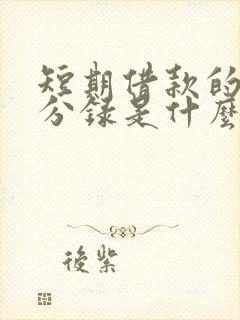 短期借款的
分錄是什麼
後紫